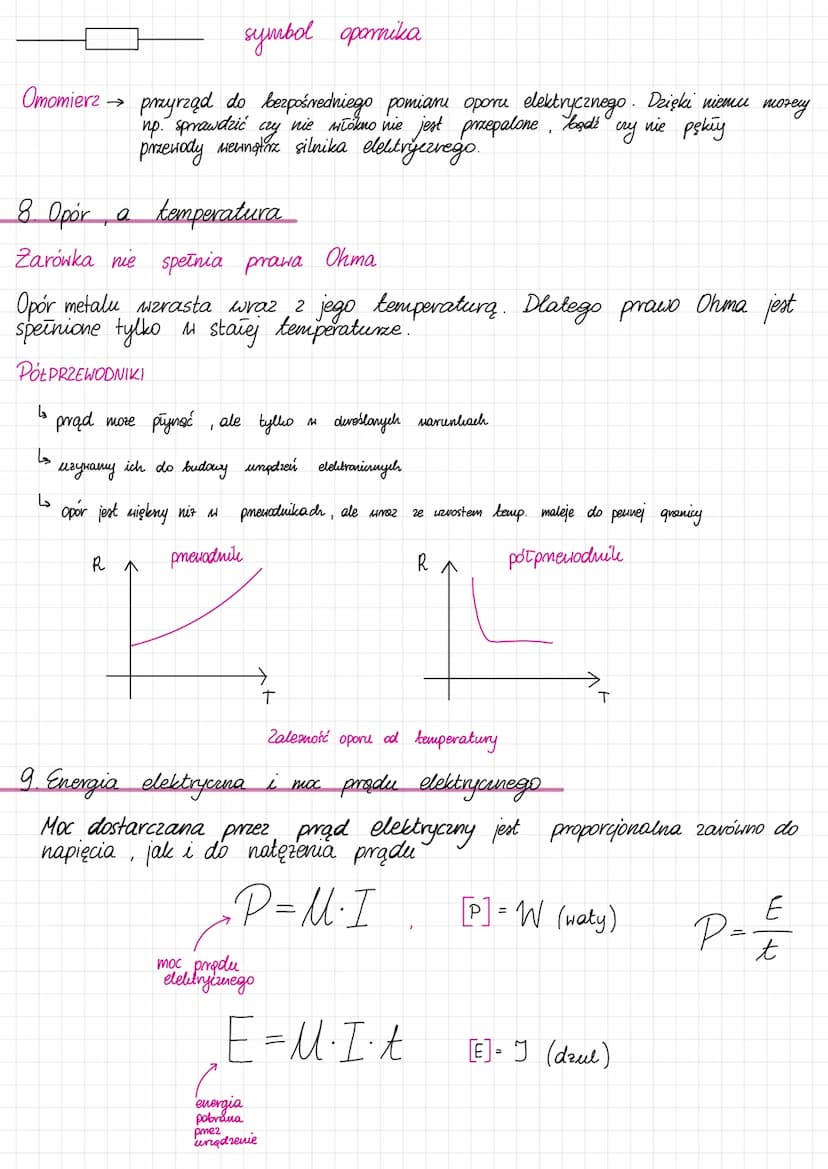 symbol opornika
Omomierz → przyrząd do bezpośredniego pomiaru oporu elektrycznego. Dzięki niemu możemy
np. sprawdzić czy nie włókno nie jest przepalone, bądź czy nie pękły
przewody wewnątrz silnika elektrycznego.
8. Opór, a temperatura
Żarówka nie spełnia prawa Ohma
Opór metalu wzrasta wraz z jego temperaturą. Dlatego prawo Ohma jest
spełnione tylko w stałej temperaturze.
PÓŁPRZEWODNIKI
↳ prąd może płynąć, ale tylko w określonych warunkach
↳ używamy ich do budowy urządzeń elektronicznych
↳ opór jest większy niż w przewodnikach, ale wraz ze wzrostem temp. maleje do pewnej granicy
R przewodnik R półprzewodnik
T T
Zależność oporu od temperatury
9. Energia elektryczna i moc prądu elektrycznego
Moc dostarczana przez prąd elektryczny jest proporcjonalna zarówno do
napięcia, jak i do natężenia prądu
P=U·I, [P]=W (waty) P=E/t
moc prądu
elektrycznego
E=U·I·t [E]=J (dżul)
energia
pobrana
przez
urządzenie